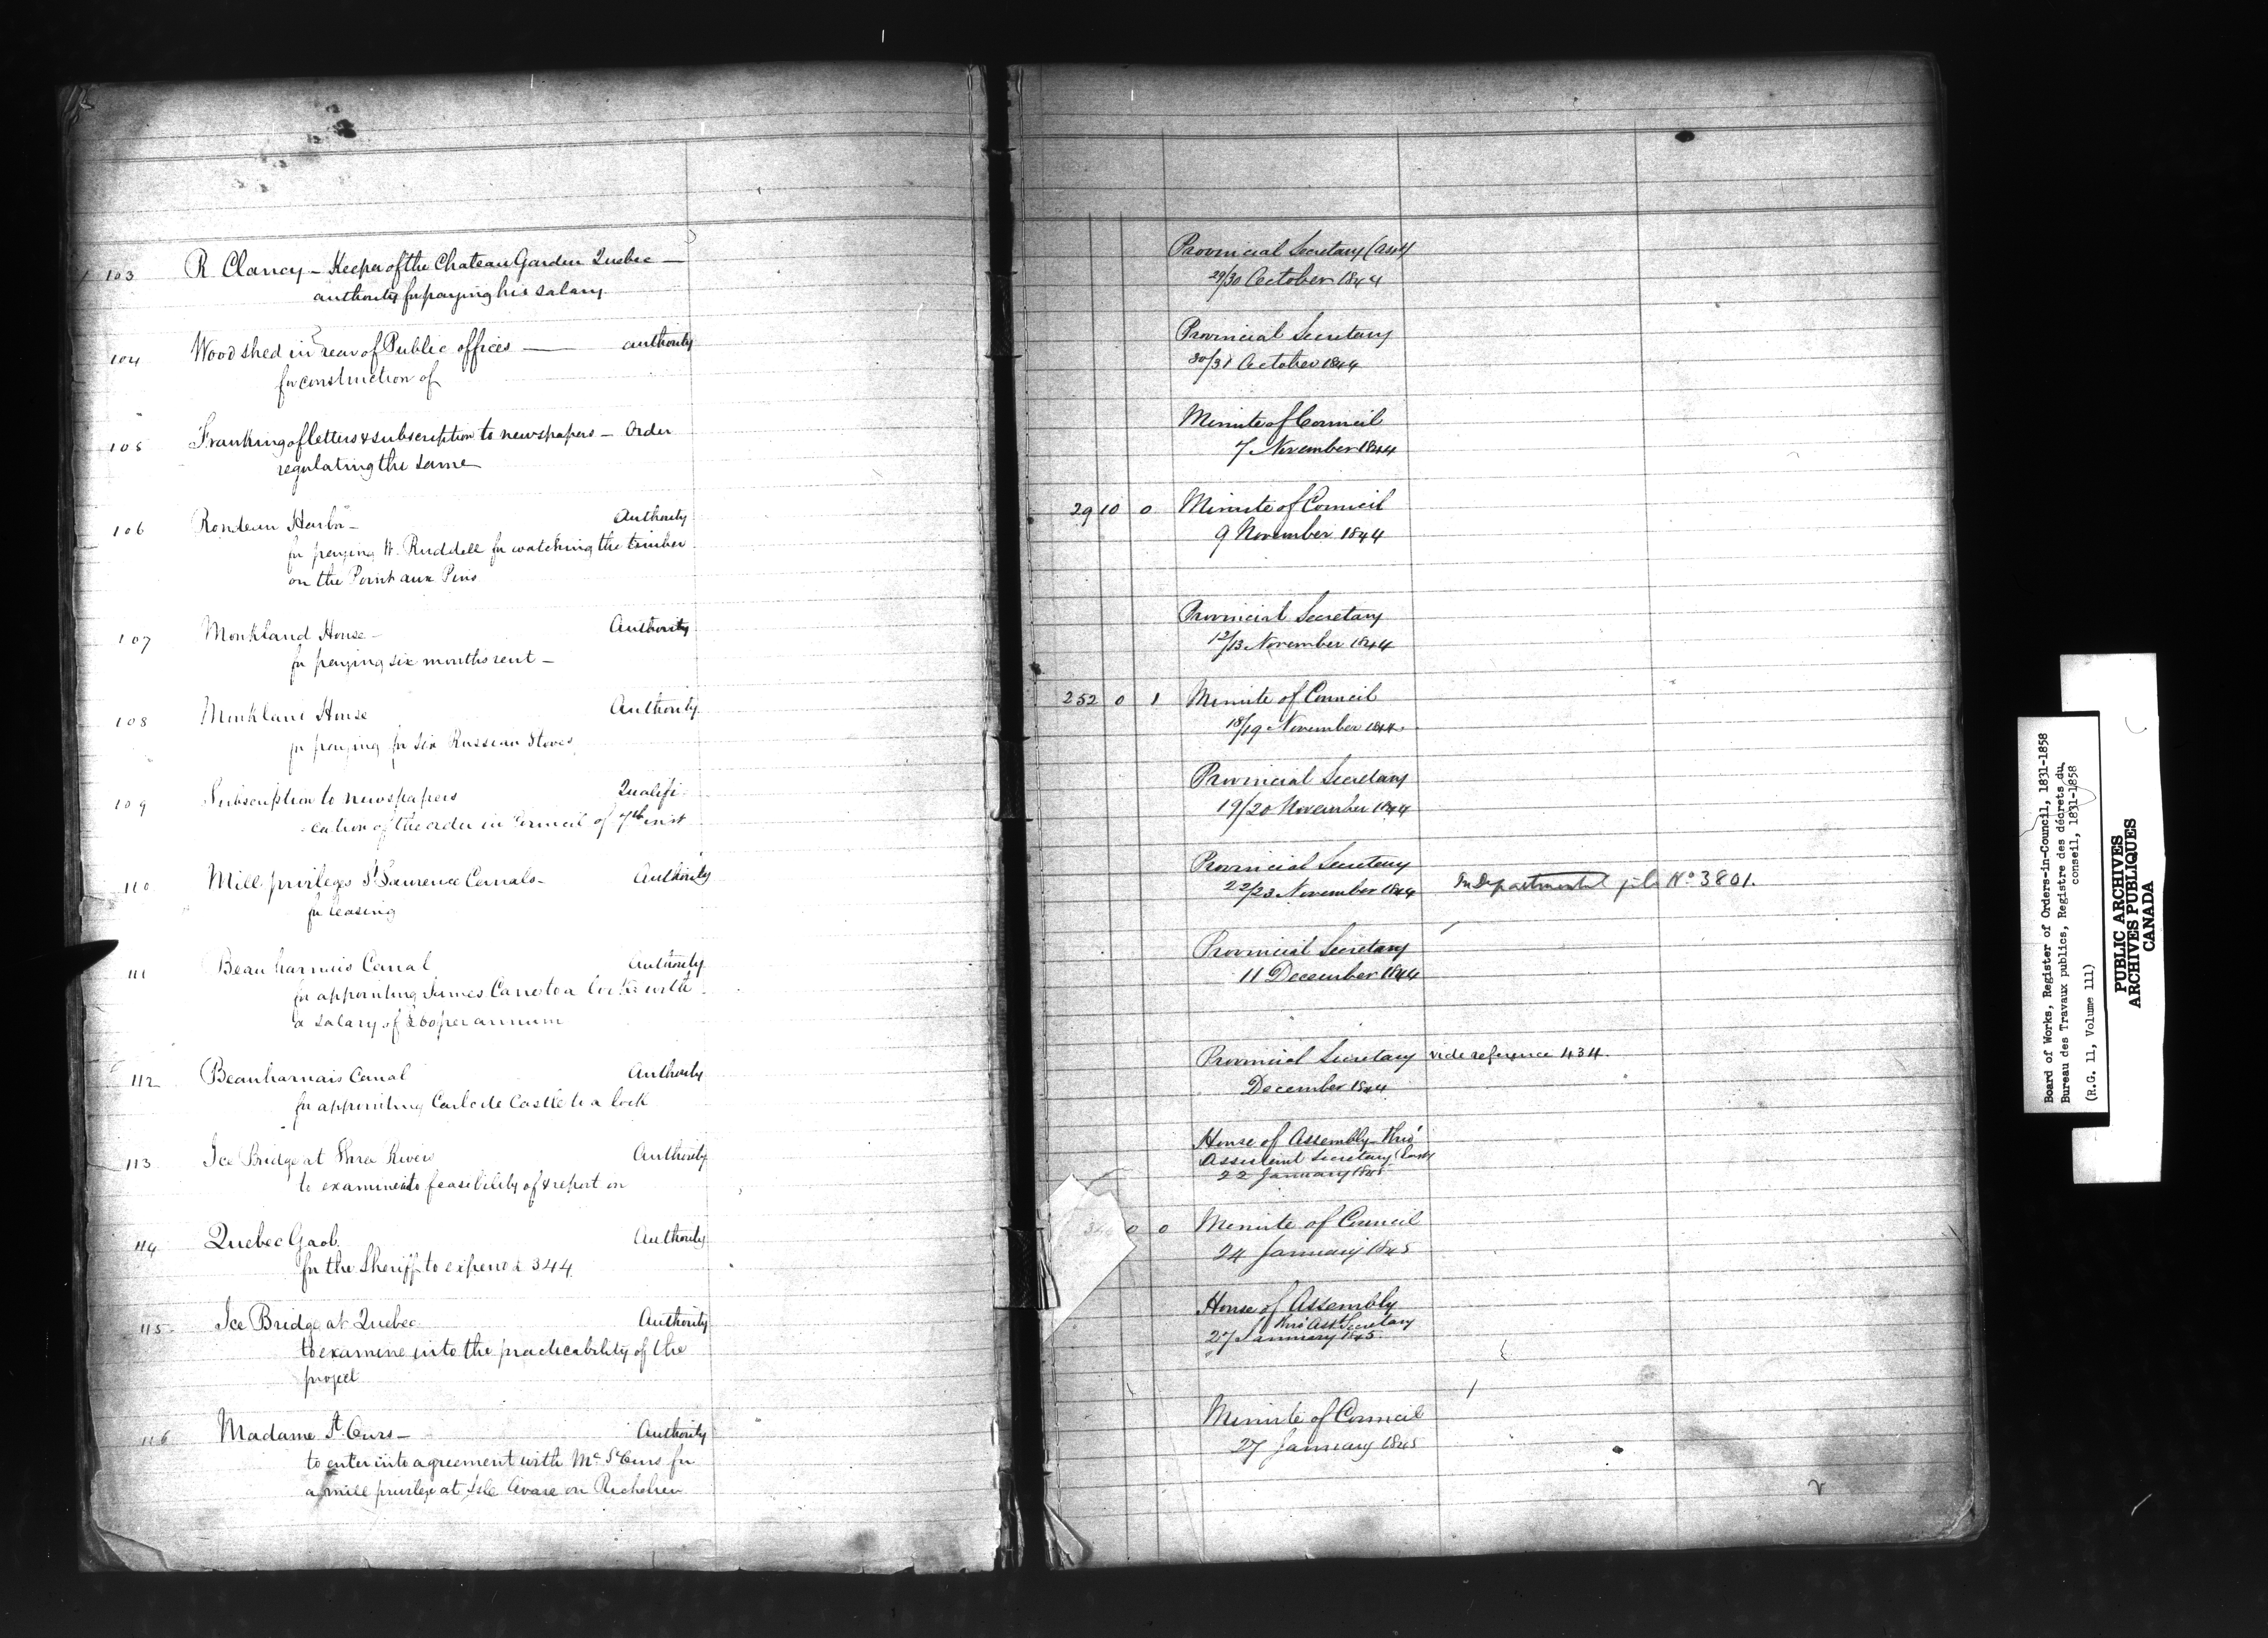 103 R Clancy – Keeper of the Chateau Garden Quebec – Provincial Secretary (Asst)
authority for paying his salary 29/30 October 1844
104 Wood shed in rear of Public offices — authority Provincial Secretary
for construction of 30/31 October 1844
105 Franking of letters & subscription to newspapers – Order Minute of Council
regulating the same 7 November 1844
106 Rondeau Harbor – Authority 29 10 0 Minute of Council
for paying W. Ruddell for watching the timber 9 November 1844
on the Point aux Pins
107 Monkland House – Authority Provincial Secretary
for paying six months rent – 12/13 November 1844
108 Monkland House Authority 252 0 1 Minute of Council
for paying for six Russian Stoves 18/19 November 1844
109 Subscription to newspapers Qualifi- Provincial Secretary
-cation of the order in Council of 7th inst 19/20 November 1844
110 Mill privileges St Lawrence Canals – Authority Provincial Secretary
for leasing 22/23 November 1844 In Departmental file No 3801.
111 Beauharnois Canal Authority Provincial Secretary
for appointing James Cane to a lock with 11 December 1844
a salary of £60 per annum
112 Beauharnais Canal Authority Provincial Secretary vide reference 434.
for appointing Castle to a lock December 1844
113 Ice Bridge at Three Rivers Authority House of Assembly thro'
to examine into feasibility of & report on Assistant Secretary East
22 January 1845
114 Quebec Gaol. Authority 0 0 Minute of Council
for the Sheriff to expend £344 24 January 1845
115 Ice Bridge at Quebec Authority House of Assembly
thro' Asst Secretary
to examine into the practicability of the 27 January 1845
project
116 Madame St Ours – Authority Minute of Council
to enter into agreement with Me St Ours for 27 January 1845
a mill privilege at Isle on Richelieu
Board of Works, Register of Orders-in-Council, 1831-1858
Bureau des Travaux publics, Registre des décrets du
conseil, 1831-1858
(R.G. 11, Volume 111)
PUBLIC ARCHIVES
ARCHIVES PUBLIQUES
CANADA